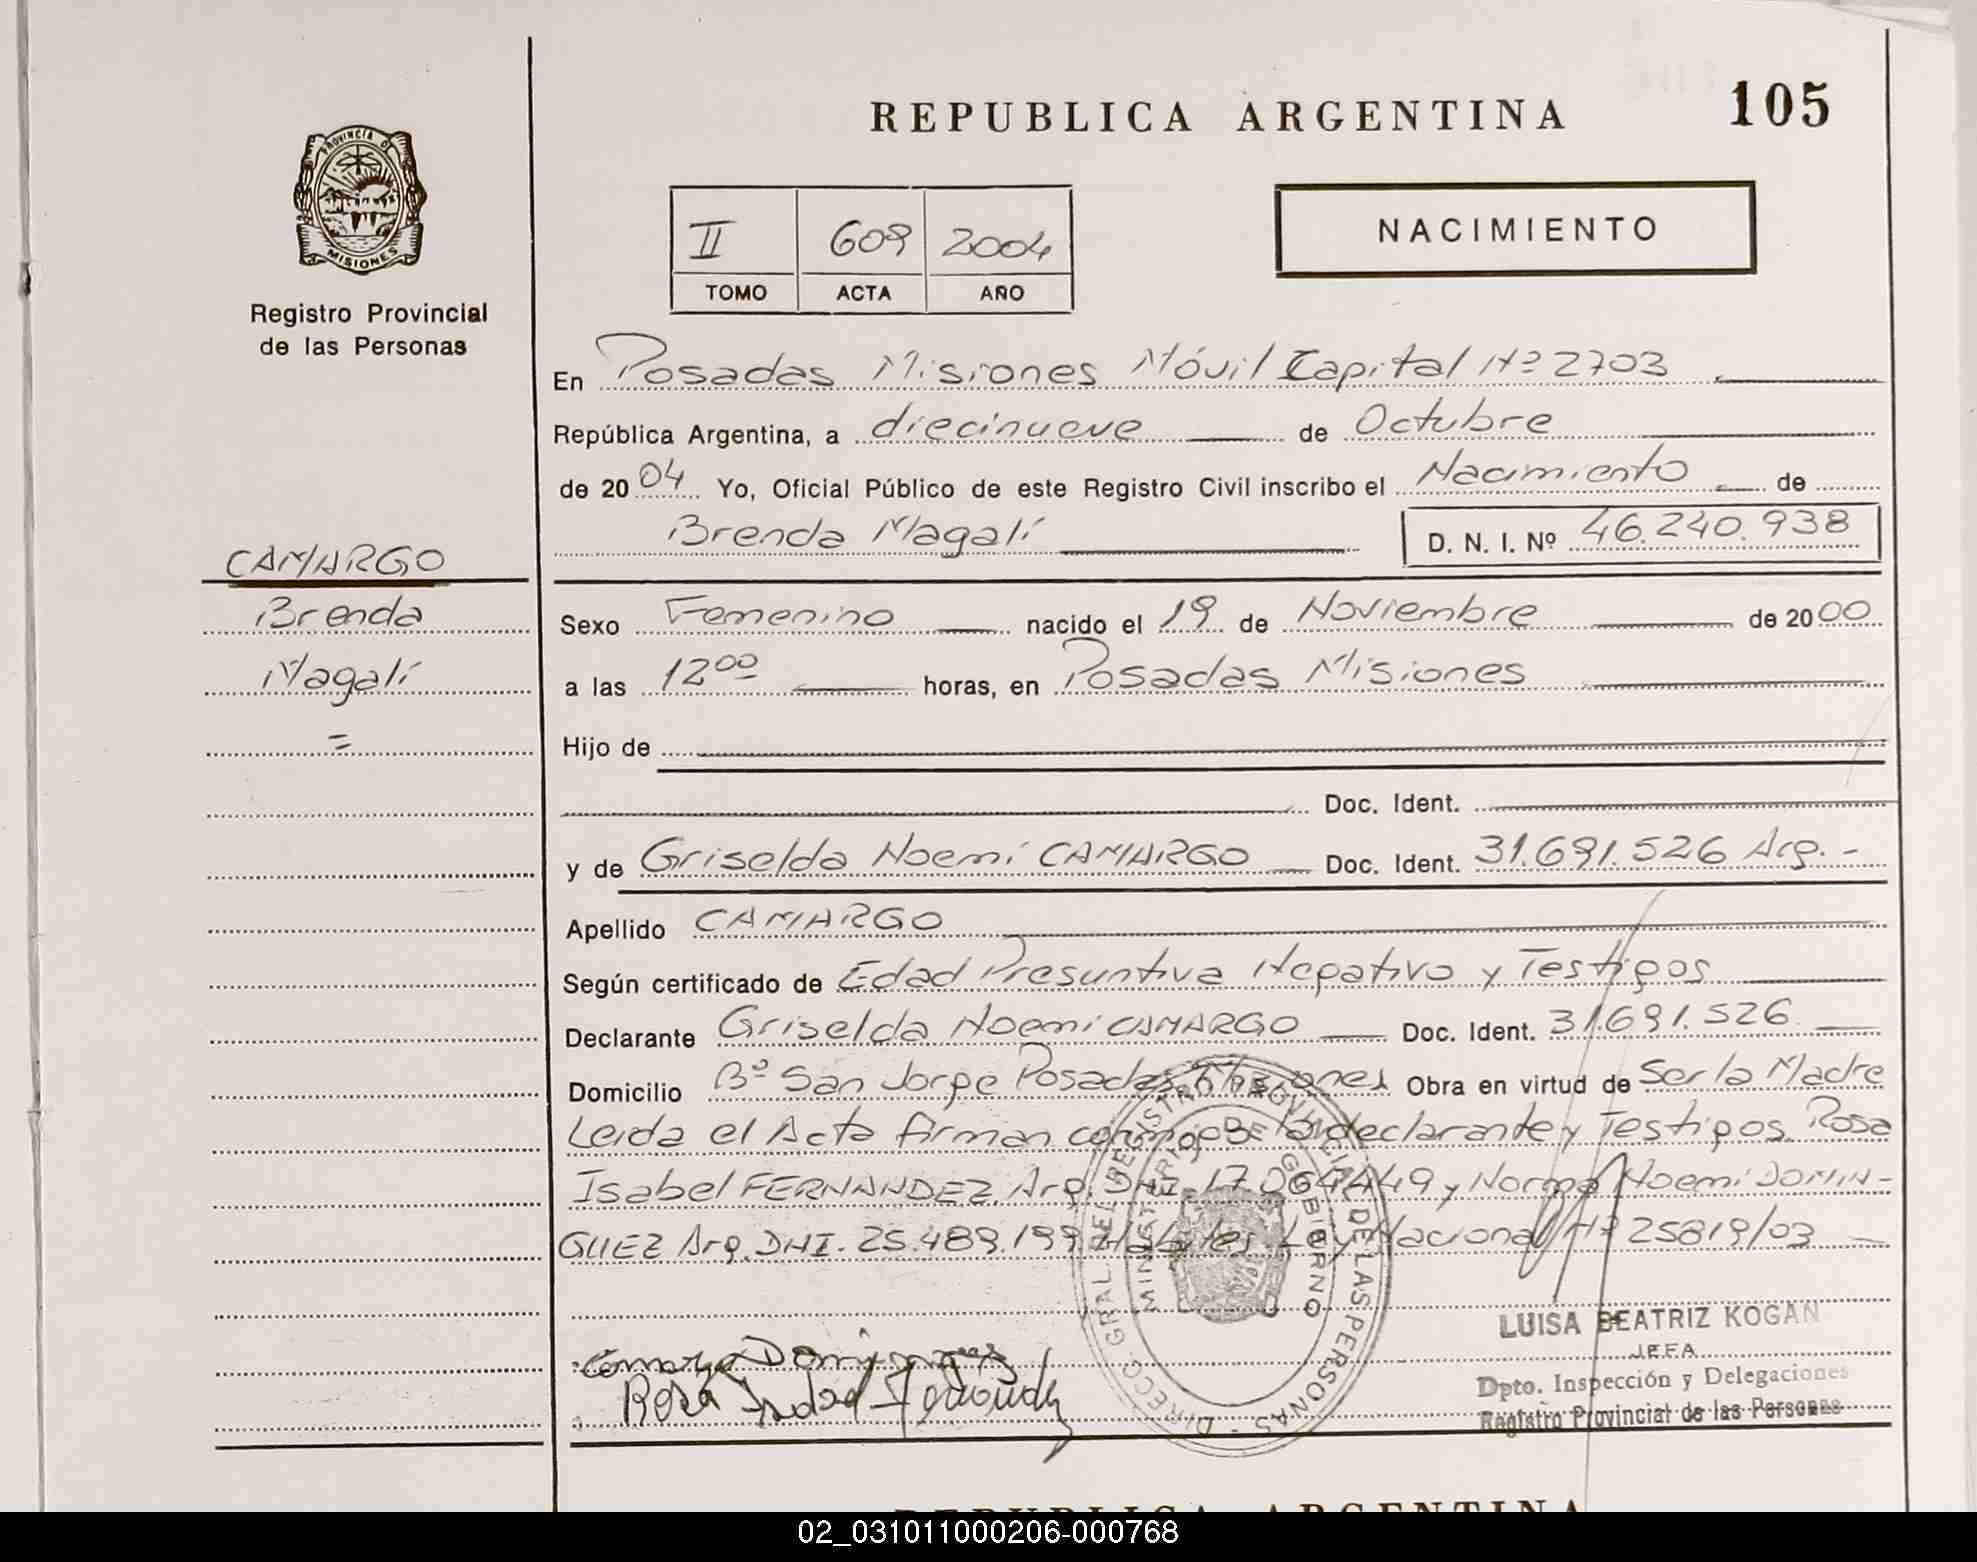 REPUBLICA ARGENTINA
105
PROVINCIA DE
MISIONES
Registro Provincial
de las Personas
II 609 2004
TOMO ACTA AÑO
NACIMIENTO
En Posadas Misiones Móvil Capital Nº 2703
República Argentina, a diecinueve de Octubre
de 2004 Yo, Oficial Público de este Registro Civil inscribo el Nacimiento de
Brenda Magalí D. N. I. Nº 46.240.938
CAMARGO
Brenda
Magalí
=
Sexo Femenino nacido el 19 de Noviembre de 2000
a las 12⁰⁰ horas, en Posadas Misiones
Hijo de
Doc. Ident.
y de Griselda Noemí CAMARGO Doc. Ident. 31.691.526 Arg. -
Apellido CAMARGO
Según certificado de Edad Presuntiva Negativo y Testigos
Declarante Griselda Noemí CAMARGO Doc. Ident. 31.691.526
Domicilio Bº San Jorge Posadas Misiones Obra en virtud de Ser la Madre
Leida el Acta firman conmigo la declarante y Testigos Rosa
Isabel FERNANDEZ Arg. DNI. 17.064.449 y Norma Noemí DOMIN-
GUEZ Arg. DNI. 25.489.199 Habiles Ley Nacional Nº 25819/03
DIRECC. GRAL. DEL REGISTRO PROVINCIAL DE LAS PERSONAS -
MINISTERIO DE GOBIERNO
Camargo Dominguez
Rosa Isabel Fernandez
LUISA BEATRIZ KOGAN
JEFA
Dpto. Inspección y Delegaciones
Registro Provincial de las Personas
REPUBLICA ARGENTINA
02_031011000206-000768